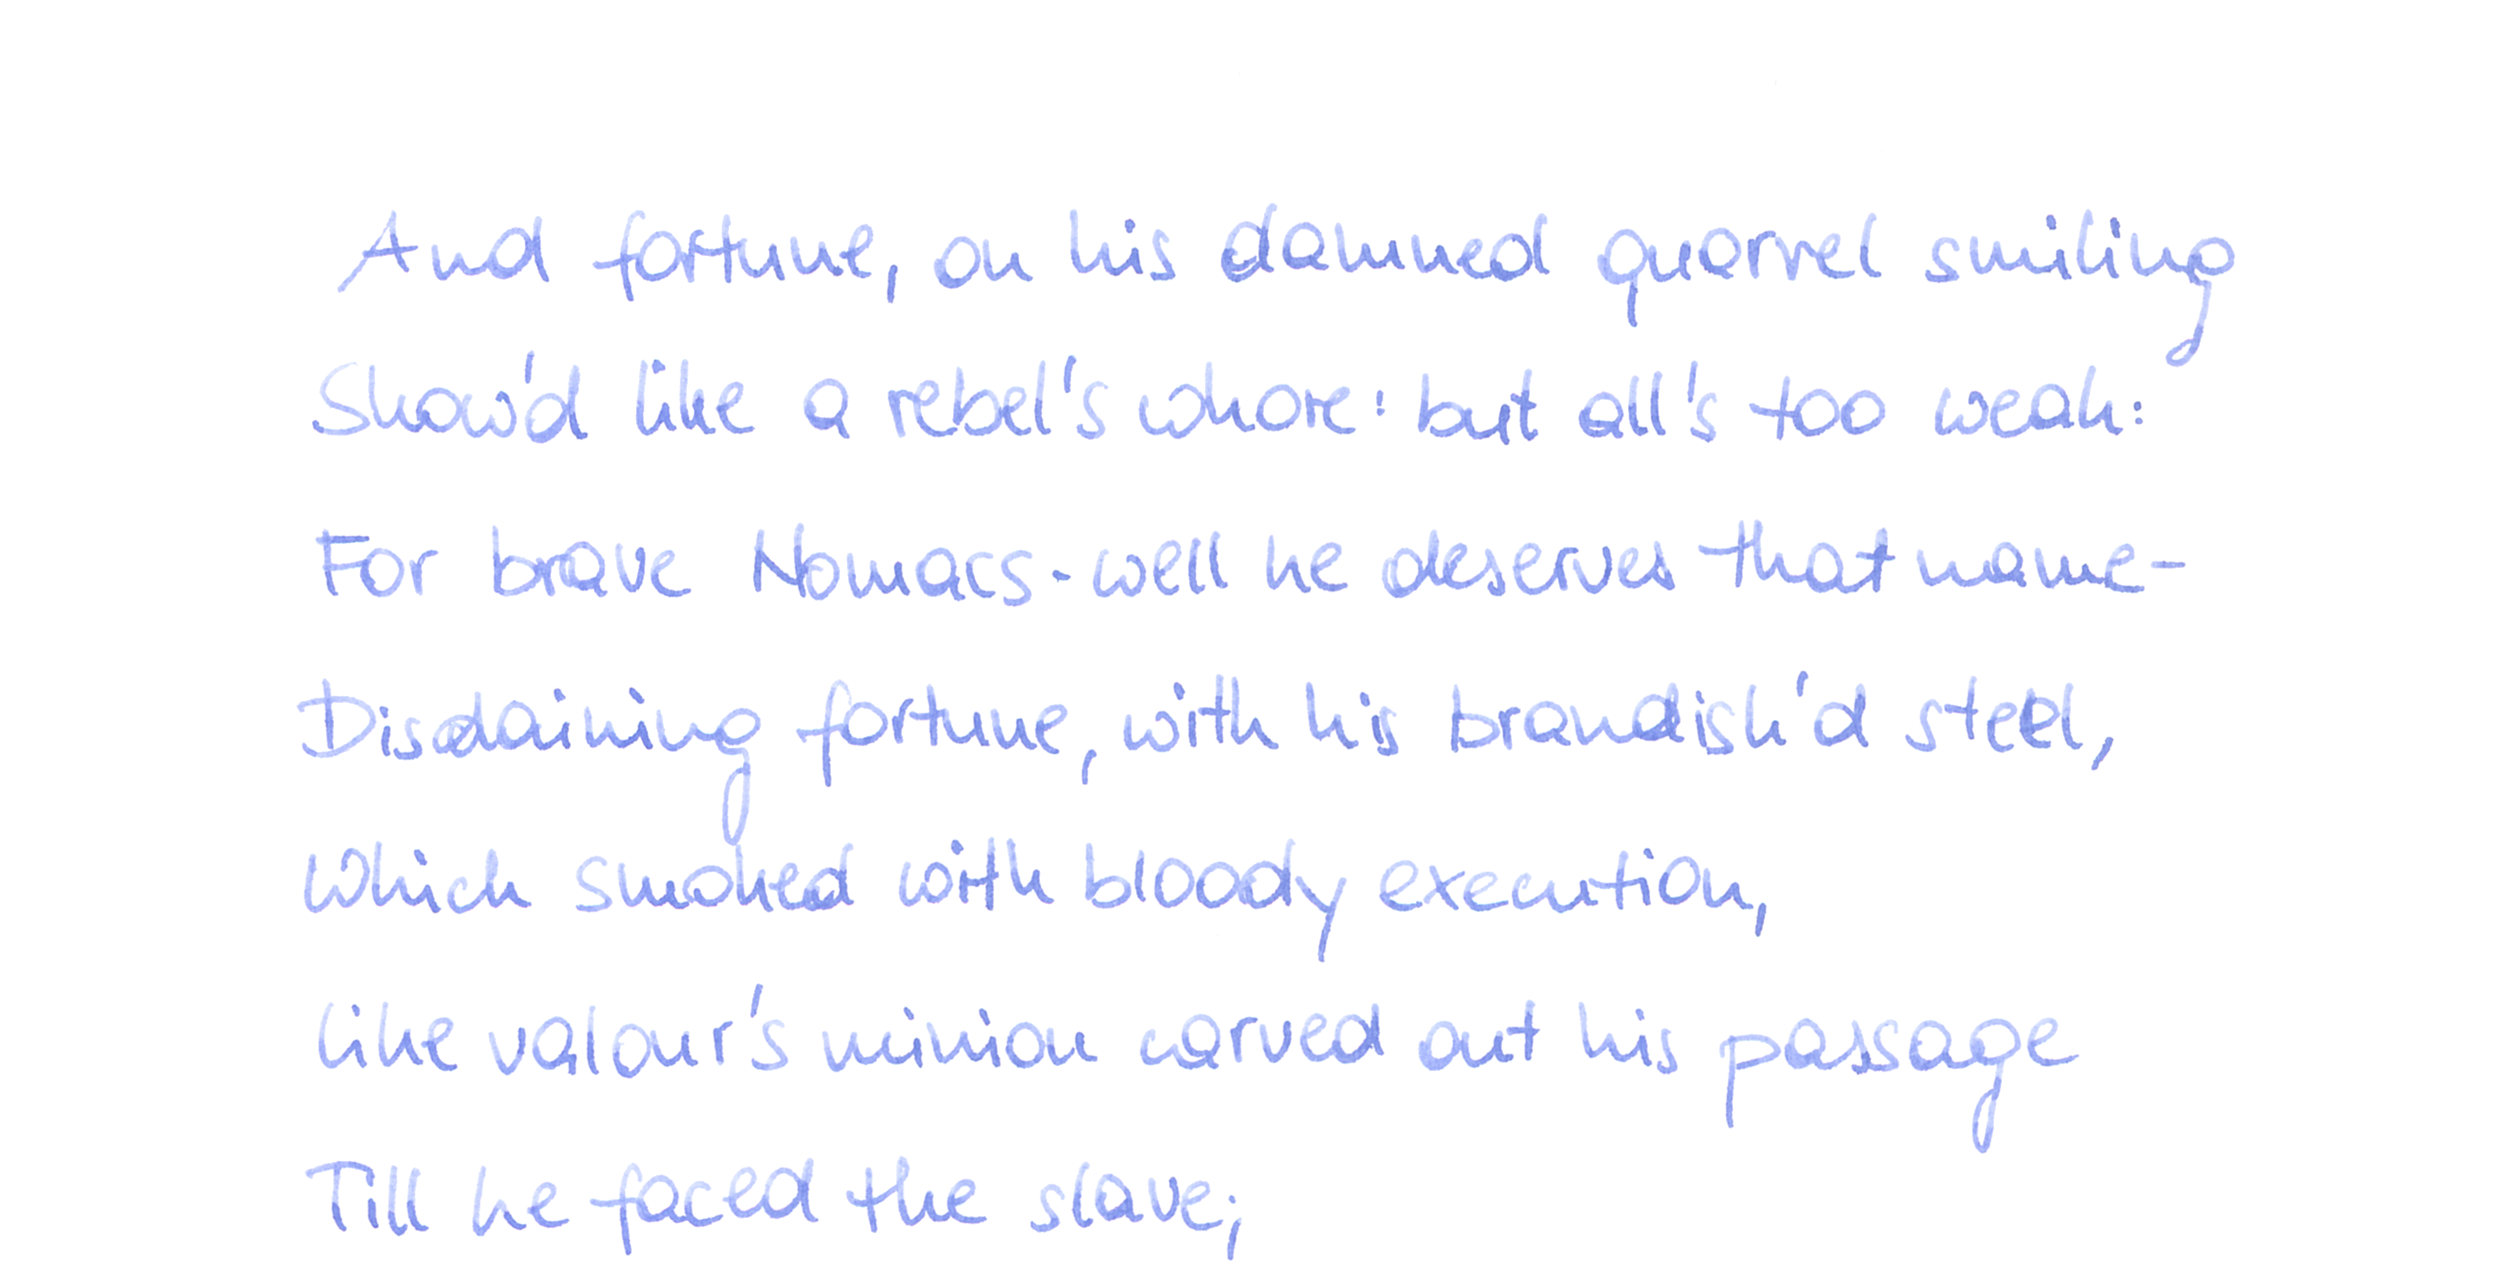 And fortune, on his damned quarrel smiling
Show'd like a rebel's whore: but all's too weak:
For brave Nomacs-well he deserves that name-
Disdaining fortune, with his brandish'd steel,
Which smoked with bloody execution,
like valour's minion carved out his passage
Till he faced the slave;